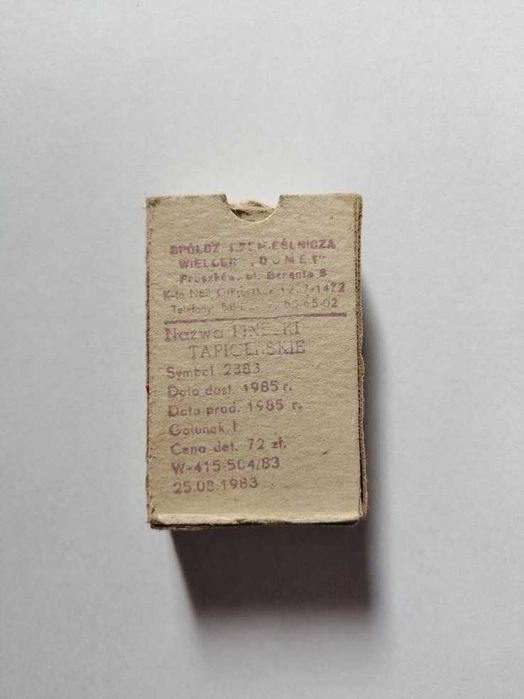 SPÓŁDZ. RZEMIEŚLNICZA
WIELOBR. "DOMET"
Pruszków, ul. Berenta 8
Nazwa PINEZKI
TAPICERSKIE
Symbol 2383
Data dost. 1985 r.
Data prod. 1985 r.
Gatunek I
Cena det. 72 zł.
W-415-504/83
25.08.1983